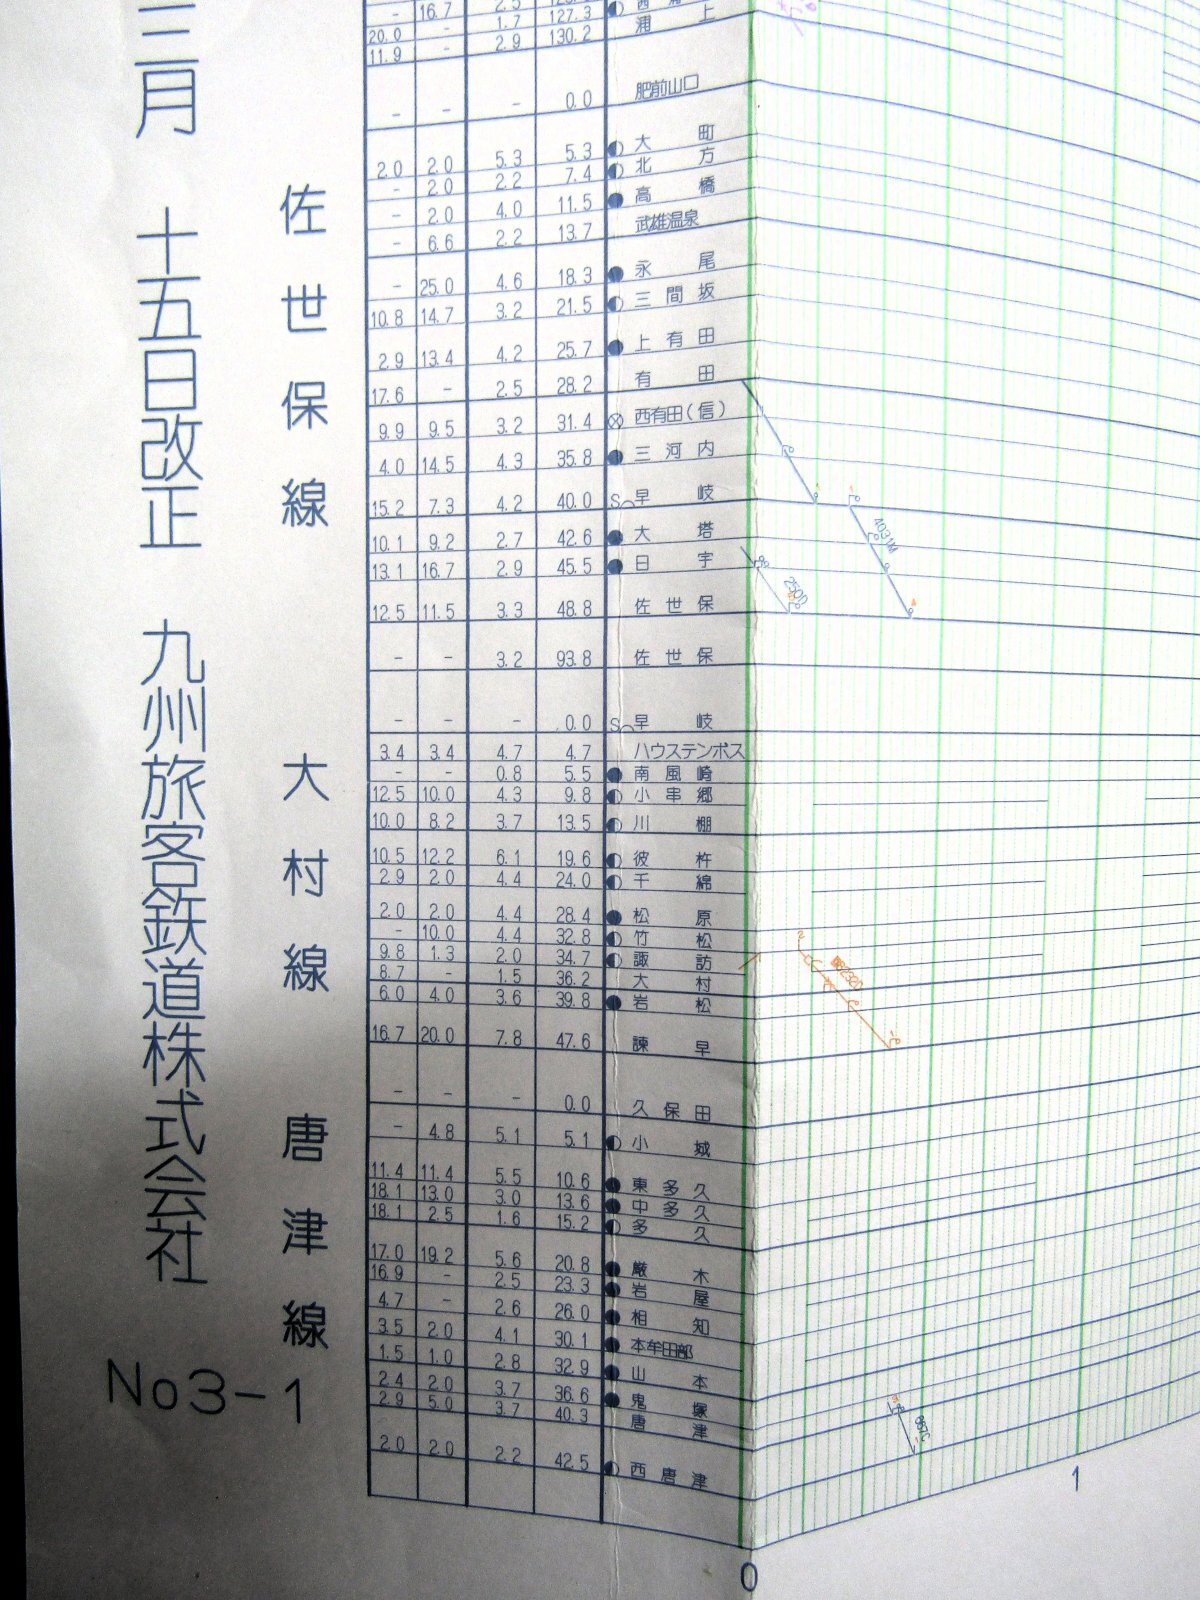 三月 十五日改正 九州旅客鉄道株式会社
佐世保線 大村線 唐津線
No3-1
- 16.7 2.5
20.0 - 1.7 127.3
11.9 - 2.9 130.2 浦上
- - - 0.0 肥前山口
2.0 2.0 5.3 5.3 大町
- 2.0 2.2 7.4 北方
- 2.0 4.0 11.5 高橋
- 6.6 2.2 13.7 武雄温泉
- 25.0 4.6 18.3 永尾
10.8 14.7 3.2 21.5 三間坂
2.9 13.4 4.2 25.7 上有田
17.6 - 2.5 28.2 有田
9.9 9.5 3.2 31.4 西有田(信)
4.0 14.5 4.3 35.8 三河内
15.2 7.3 4.2 40.0 S 早岐
10.1 9.2 2.7 42.6 大塔
13.1 16.7 2.9 45.5 日宇
12.5 11.5 3.3 48.8 佐世保
- - 3.2 93.8 佐世保
- - - 0.0 S 早岐
3.4 3.4 4.7 4.7 ハウステンボス
- - 0.8 5.5 南風崎
12.5 10.0 4.3 9.8 小串郷
10.0 8.2 3.7 13.5 川棚
10.5 12.2 6.1 19.6 彼杵
2.9 2.0 4.4 24.0 千綿
2.0 2.0 4.4 28.4 松原
- 10.0 4.4 32.8 竹松
9.8 1.3 2.0 34.7 諏訪
8.7 - 1.5 36.2 大村
6.0 4.0 3.6 39.8 岩松
16.7 20.0 7.8 47.6 諫早
- - - 0.0 久保田
- 4.8 5.1 5.1 小城
11.4 11.4 5.5 10.6 東多久
18.1 13.0 3.0 13.6 中多久
18.1 2.5 1.6 15.2 多久
17.0 19.2 5.6 20.8 厳木
16.9 - 2.5 23.3 岩屋
4.7 - 2.6 26.0 相知
3.5 2.0 4.1 30.1 本牟田部
1.5 1.0 2.8 32.9 山本
2.4 2.0 3.7 36.6 鬼塚
2.9 5.0 3.7 40.3 唐津
2.0 2.0 2.2 42.5 西唐津
4031M
250D
0
1